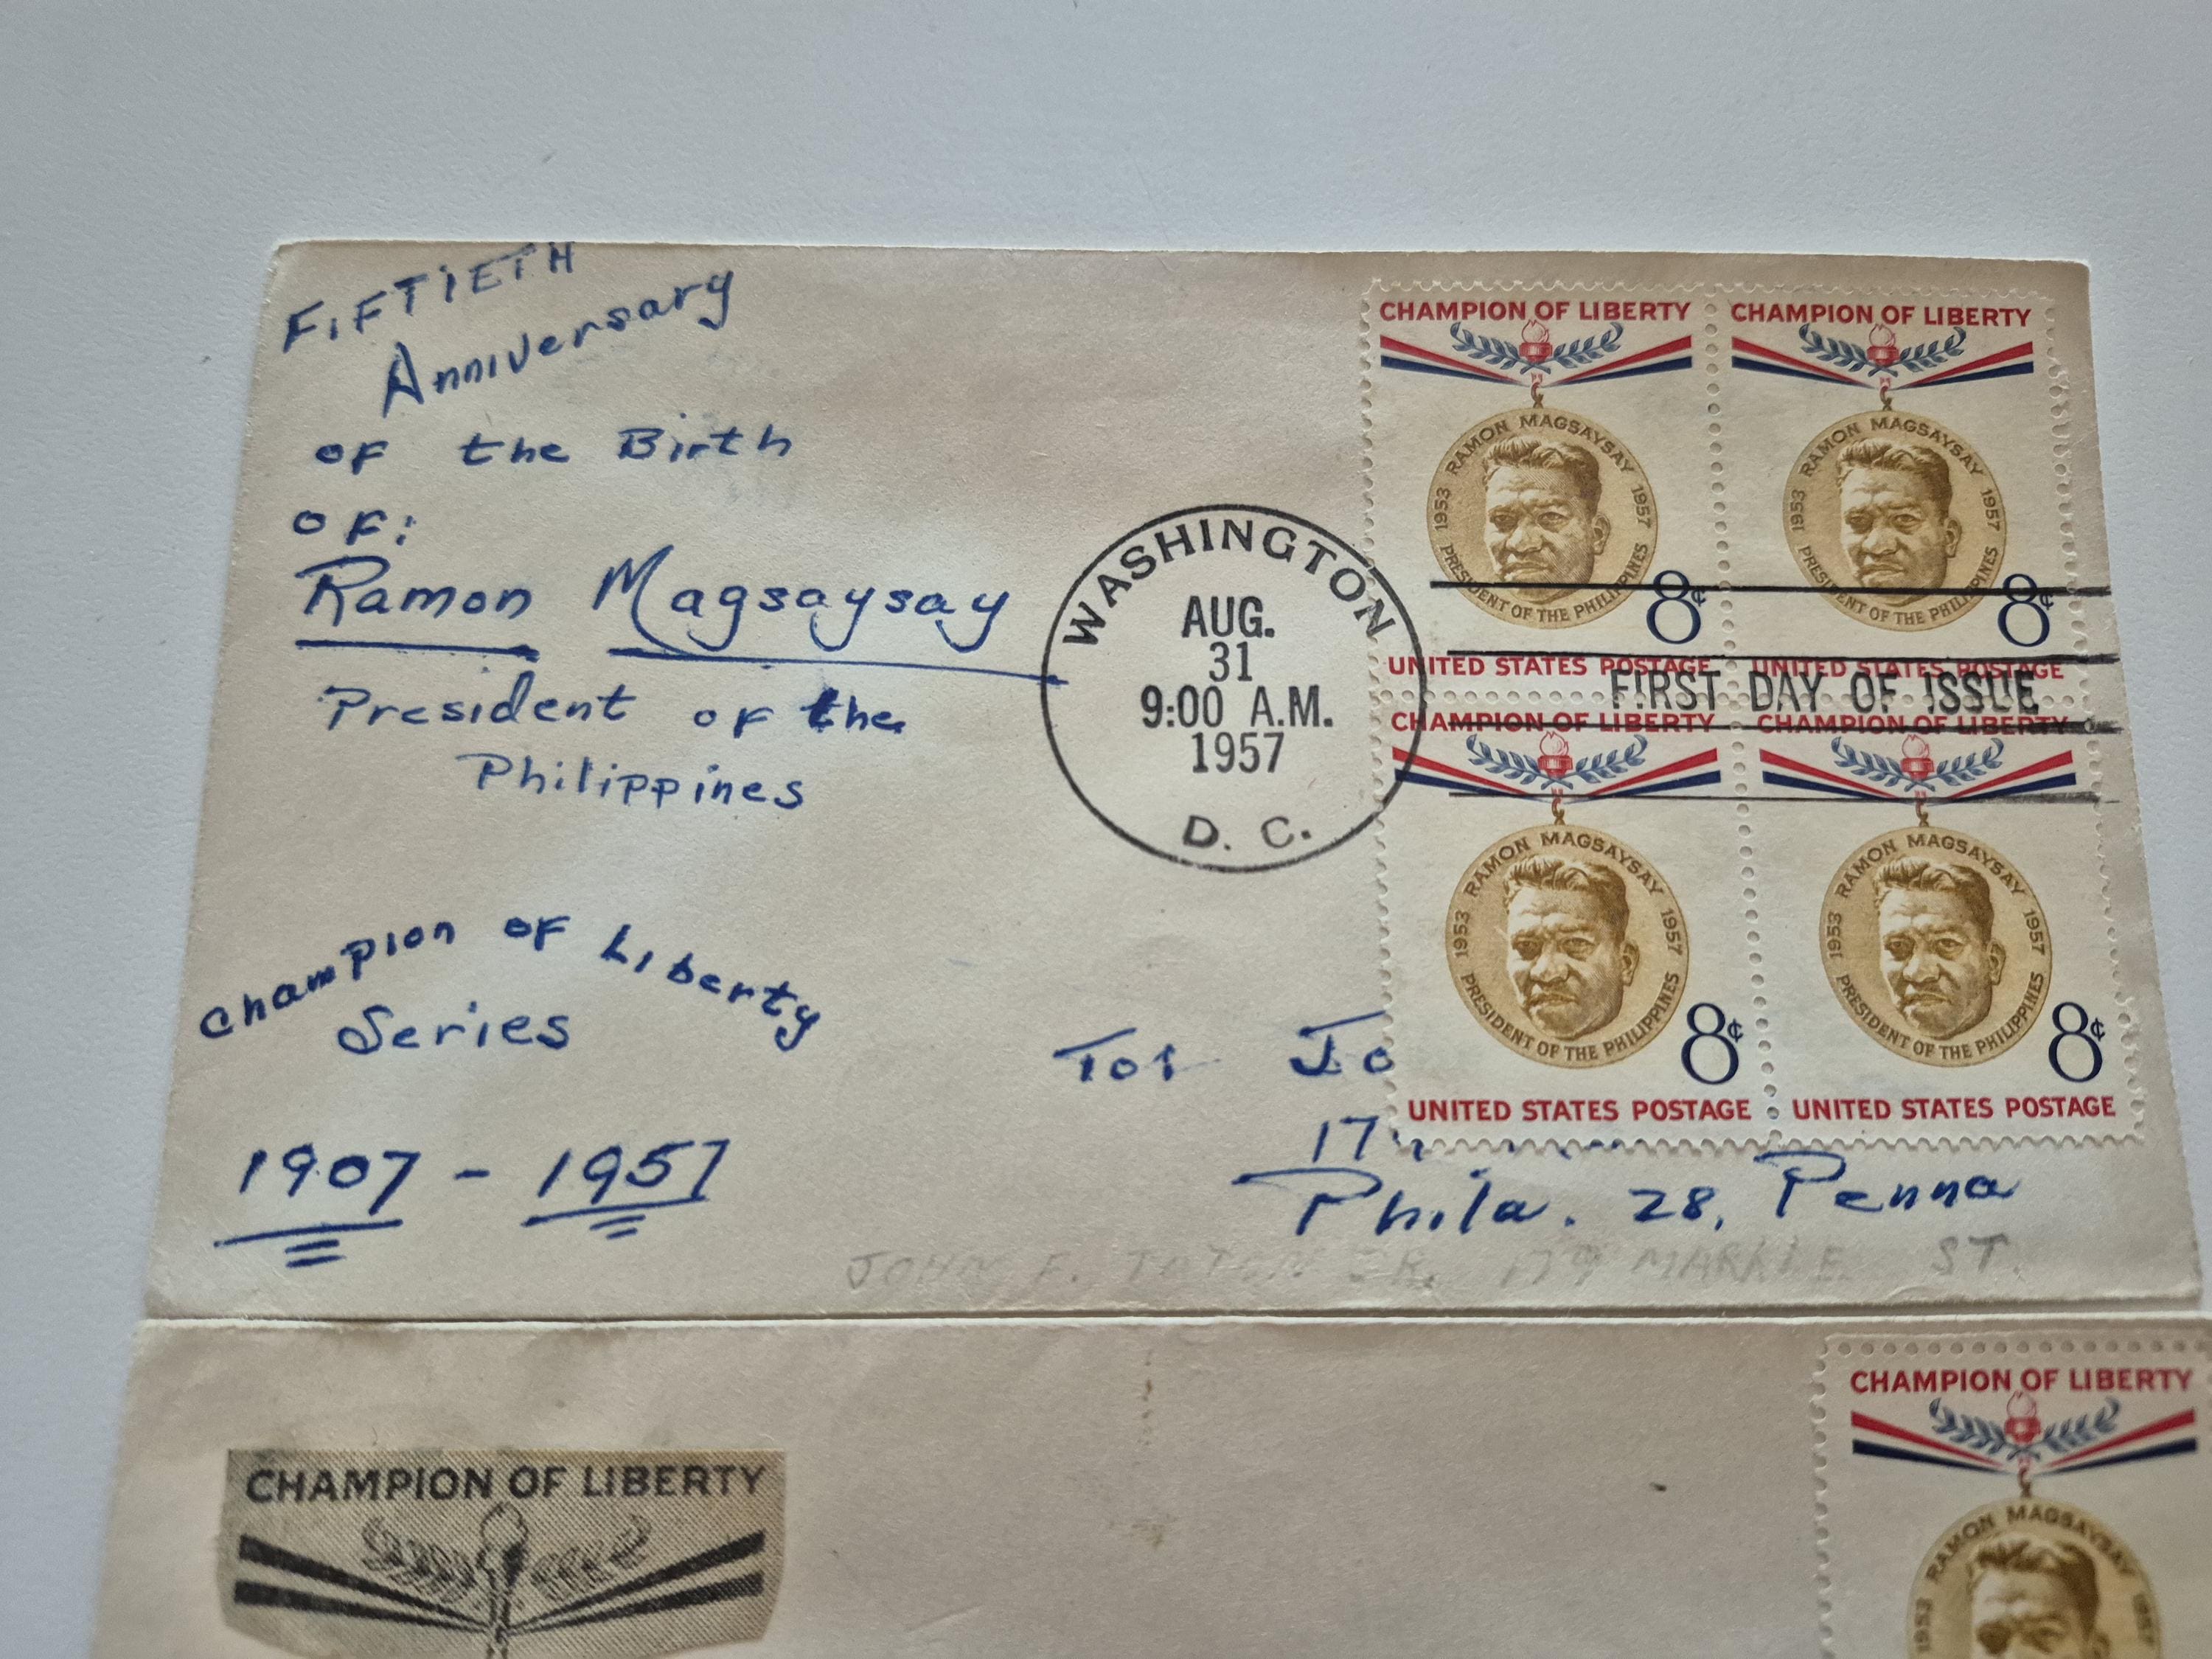 FIFTIETH
Anniversary
of the Birth
OF:
Ramon Magsaysay
President of the
Philippines
Champion of Liberty
Series
1907 - 1957
WASHINGTON
AUG.
31
9:00 A.M.
1957
D. C.
CHAMPION OF LIBERTY
RAMON MAGSAYSAY
1953 1957
PRESIDENT OF THE PHILIPPINES
8¢
UNITED STATES POSTAGE
CHAMPION OF LIBERTY
RAMON MAGSAYSAY
1953 1957
PRESIDENT OF THE PHILIPPINES
8¢
UNITED STATES POSTAGE
FIRST DAY OF ISSUE
CHAMPION OF LIBERTY
RAMON MAGSAYSAY
1953 1957
PRESIDENT OF THE PHILIPPINES
8¢
UNITED STATES POSTAGE
CHAMPION OF LIBERTY
RAMON MAGSAYSAY
1953 1957
PRESIDENT OF THE PHILIPPINES
8¢
UNITED STATES POSTAGE
To: Jo
17
Phila. 28, Penna
JOHN F. JR. 179 ST.
CHAMPION OF LIBERTY
CHAMPION OF LIBERTY
RAMON MAGSAYSAY
1953 1957